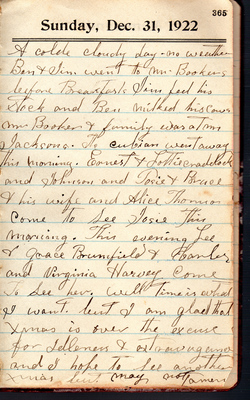 365
Sunday, Dec. 31, 1922
A cold cloudy day - no weather
Ben & Jim went to Mr Bookers
before Breakfast. Jim fed his
Sock and Ben milked his cows
Mr Booker & family was at Mr
Jacksons. To went away
this morning. Ernest & Lottie Craddock
and Johnson and Josie & Bruce
& his wife and Alice Thomas
Come to See Josie this
morning. This evening Lee
& Grace Brumfield & Charles
and Virginia Harvey Come
To See her. well time is what
I want. but I am glad that
Xmas is over the excuse
for Idleness & extravagance
and I hope to see another
Xmas but may not